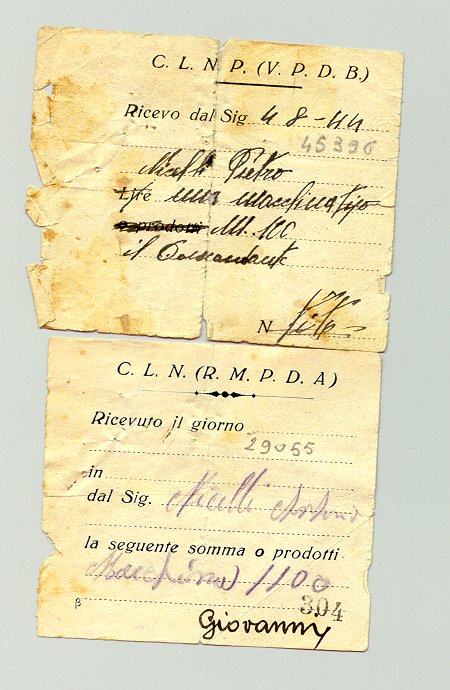 C. L. N. P. (V. P. D. B.)
Ricevo dal Sig. 4-8-44
45396
Nicelli Pietro
Lire una macchina tipo
e prodotti M. 1100
il Comandante
N
C. L. N. (R. M. P. D. A)
Ricevuto il giorno
29055
in
dal Sig. Nicelli Antonio
la seguente somma o prodotti
Macchina 1100
304
β
Giovanny